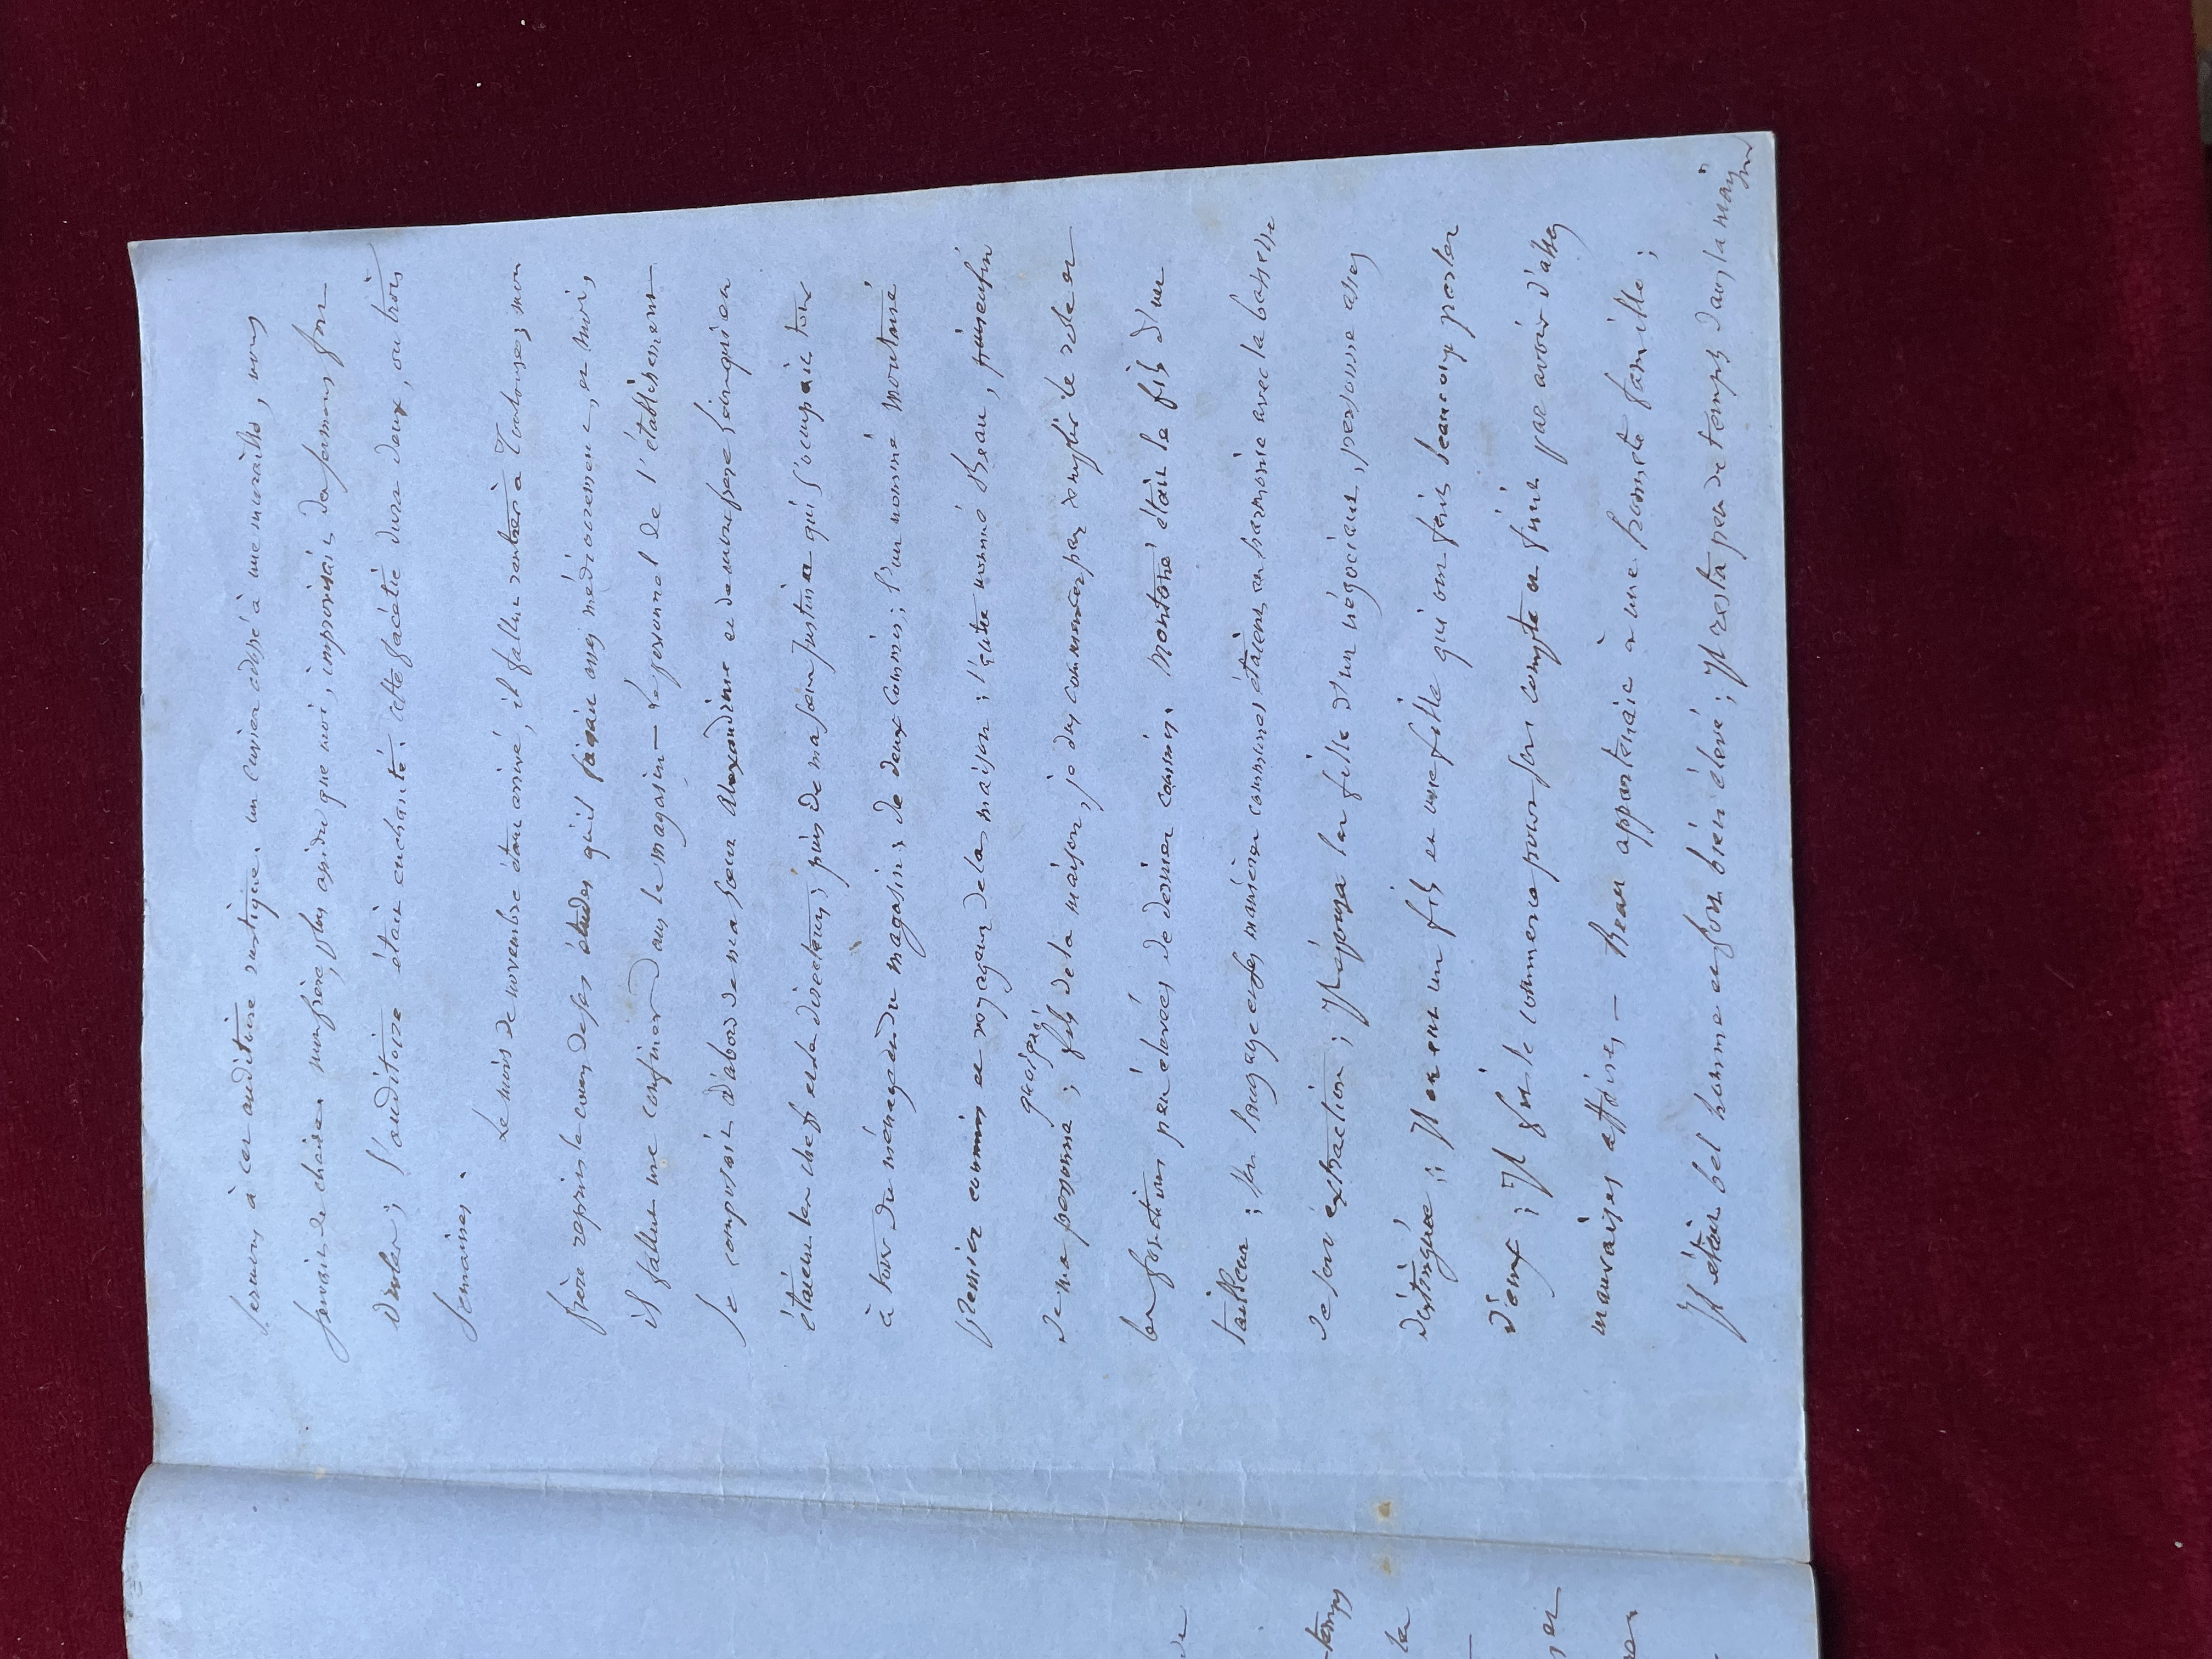 sermons à cet auditoire rustique. un cuvier adossé à une muraille, nous
servait de chaire. mon frère, plus assidu que moi, improvisait des sermons fort
droles; l'auditoire était enchanté. cette facétie dura deux, ou trois
semaines.
Le mois de novembre étant arrivé, il fallut rentrer à Toulouse; mon
frère reprit le cours de ses études qu'il faisait assez médiocrement, et moi,
il fallut me confiner dans le magasin — Le personnel de l'établissement
se composait d'abord de ma sœur Alexandrine et de mon frère qui en
étaient les chefs et la direction; puis de ma sœur Justine qui s'occupait tour
à tour du ménage et du magasin; de deux commis; l'un nommé Montané
premier commis et voyageur de la maison; l'autre nommé Beau, puis enfin
de ma personne; quoique fils de la maison, je dus commencer par remplir le role et
les fonctions peu élevées de dernier commis. Montané était le fils d'un
tailleur; son langage et ses manières communes étaient en harmonie avec la bassesse
de son extraction; Il épousa la fille d'un négociant, personne assez
distinguée; Il en eut un fils et une fille qui ont fait beaucoup parler
d'eux; Il fit le commerce pour son compte et finit par avoir d'assez
mauvaises affaires — Beau appartenait à une honnete famille;
Il était bel homme et fort bien élevé; Il resta peu de temps dans la maison
temps
la